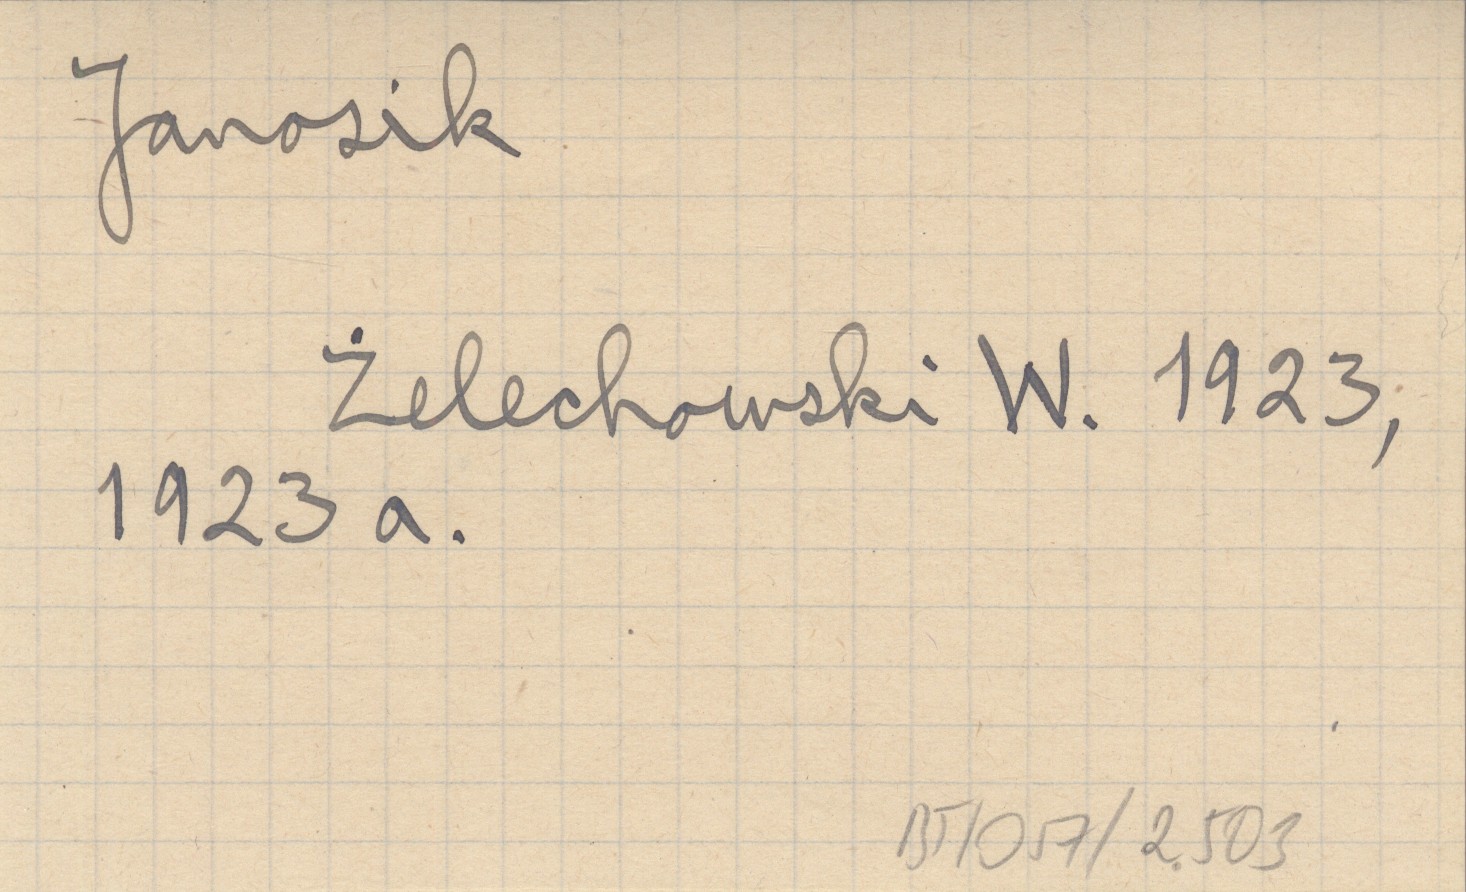 Janosik
Żelechowski W. 1923,
1923 a.
BT/057/2.503